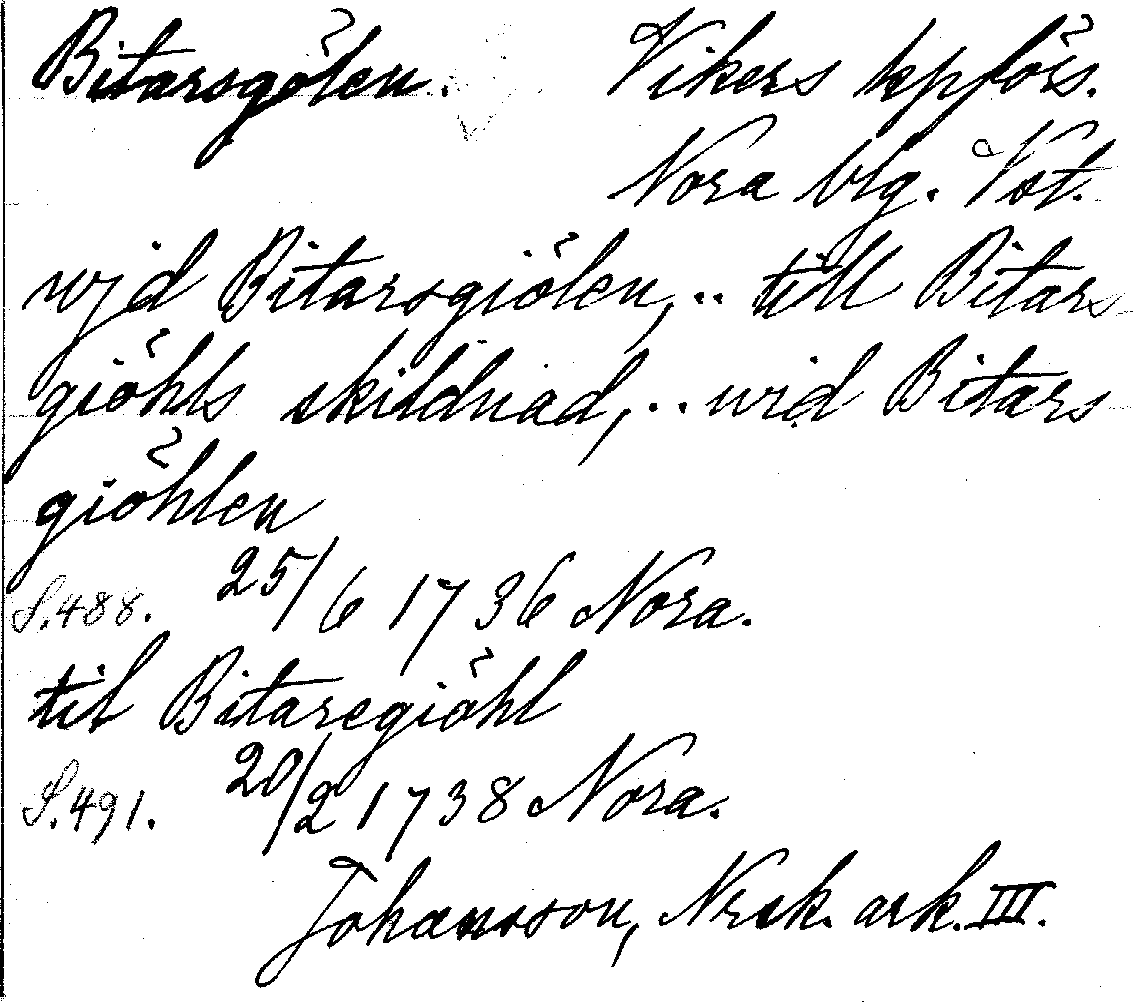 Bitarsgölen. Vikers kpförs.
Nora blg. Vst.
wjd Bitarsgiölen, .. till Bitars
giöhls skildnad, .. wid Bitars
giöhlen
S. 488. 25/6 1736 Nora.
til Bitaregiöhl
S. 491. 20/2 1738 Nora.
Johansson, Nrsk. ark. III.